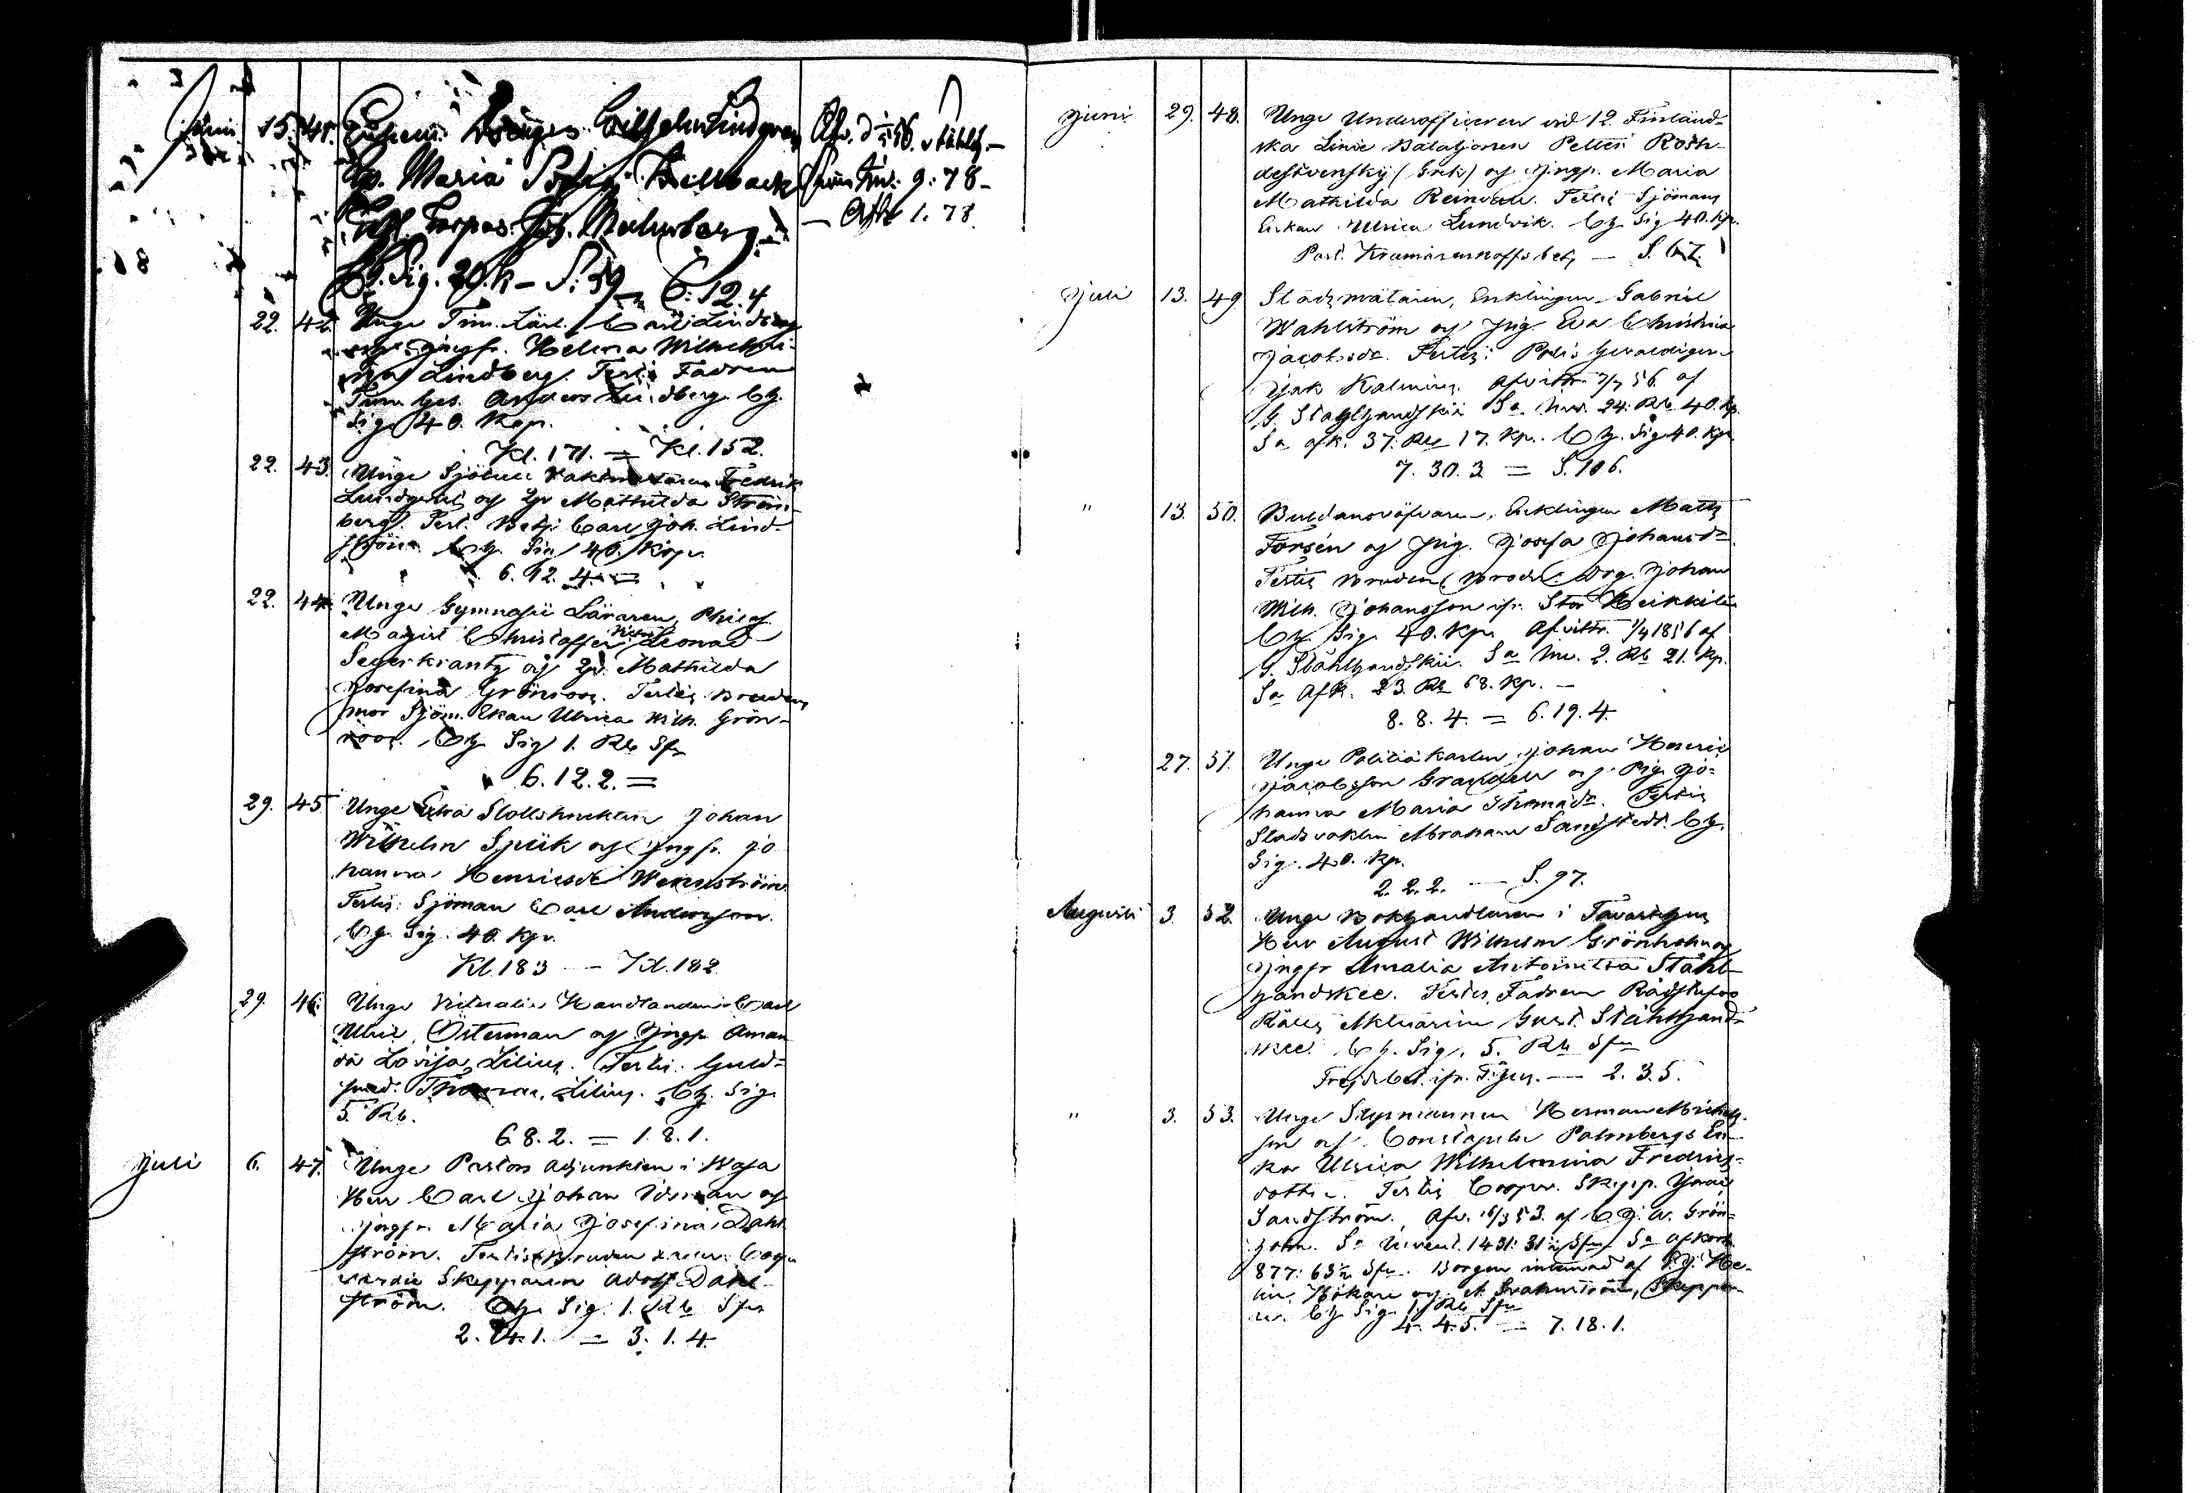 Juni 15. 41. Wilhelm Lindgren Afv. d. 56. v. Ståhlh.
Maria Sofia 9:78-
Torpar. Joh. Malmberg 1.78.
Sig. 20. k - S. 39 6.12.4
22. 42. Unge Tim. Lärl. Carl Lindberg
jungfr. Helena Wilhelmi-
na Lindberg. Tertis Fadren
Tim. Ges. Anders Lindberg. Ch.
Sig. 40. Kop.
Kl. 171. = Kl. 152.
22. 43. Unge Sjötull Vaktmästaren Fredrik
Lundqvist og Jgr Mathilda Ström-
berg. Tert. Betj. Carl Joh. Lind-
ström. Ch. Sig 40. Kop.
6. 12. 4. =
22. 44. Unge Gymnasii Läraren, Philos.
Magist Christoffer Leonard
Segerkrantz og Jgr. Mathilda
Josefina Grönroos. Tertis Brudens
mor Sjöm. Ekan Ulrica Wilh. Grön-
roos. Ch. Sig 1. Rb Sfr
6. 12. 2. =
29. 45. Unge Slottsknekten Johan
Wilhelm Spiik og jungfr. Jo
hanna Henricsdr Wennström
Tertis: Sjöman Carl Andersson.
Ch. Sig. 40. Kpr.
Kl. 183 - Kl. 182
29. 46. Unge Victualie Handlanden Carl
Ulric Österman og Jungfr. Aman
da Lovisa Lilius. Tertis: Guld-
smed. Thomas Lilius. Ch. Sig.
5. Rb.
6 8. 2. = 1. 8. 1.
Juli 6. 47. Unge Pastors Adjunkten i Wasa
Herr Carl Johan Idman og
jungfr. Maria Josefina Dahl
ström. Tertis: Brudens
Skepparen Adolf Dahl-
ström. Ch. Sig: 1. Rb Sfr
2. 4. 1. = 3. 1. 4.
Juni 29. 48. Unge Underofficeren vid 12. Finländ-
ska Linie Bataljonen Petter Rosh-
destvensky (Grek) og Jungfr. Maria
Mathilda Reinvall. Tertis Sjömans
Enkan Ulrica Lundvik. Ch. Sig 40. Kp.
Past. Kramarenkoffs bet. - S. 67.
Juli 13. 49 Stadsmätaren, Enklingen Gabriel
Wahlström og Pig. Eva Christina
Jacobsdr. Tertis: Polis Gevaldigern
Isak Kalmins. Afvittr. 7/7 56 af
G. Ståhlhandskii Sa Inv. 24. Rb 40. Kp.
Sa afk. 37. Rb 17. Kp. Ch. Sig 40. Kp.
7. 30. 3 = S. 106.
" 13. 50. Buldansväfvaren, Enklingen Matts
Forsén og Pig. Josefa Johansdr
Tertis Brudens Broder Drg. Johan
Wilh. Johansson ifr. Stor Heikkilä
Ch. Sig. 40. Kp. Afvittr. 1/4 1856 af
G. Ståhlhandskii. Sa Inv. 2. Rb 21. Kp.
Sa Afk. 23. Rb 68. Kp. -
8. 8. 4. = 6. 19. 4.
27. 51. Unge Politiekarlen Johan Henric
Jacobsson Grandell og Pig. Jo-
hanna Maria Thomasdr. Tertis
Stadsvakten Abraham Sandstedt. Ch.
Sig. 40. Kp.
2. 2. 2. - S. 97.
Augusti 3. 52. Unge Bokhandlaren i Tavastehus
Herr August Wilhelm Grönholm og
Jungfr Amalia Antoinetta Ståhl-
handskee. Tertis Fadren Rådstufvo
Rätts Aktuarien Gust. Ståhlhand-
skee. Ch. Sig. 5. Rb Sfr
Frejdebet. ifr. T:hus. - 2. 3. 5.
" 3. 53. Unge Styrmannen Herman Michels-
son og Constapeln Palmbergs En-
ka Ulrica Wilhelmina Fredrics-
dotter. Tertis Cooper. Skepp. Isac
Sandström. Afv. 16/3 53. af C. J. W. Grön-
holm. Sa Invent. 1431: 31 Sfr Sa Afkort
877: 63 Sfr. Borgen intecknad af
Hökare og A.
Ch. Sig 1. Rb Sfr
4. 4. 5. = 7. 18. 1.